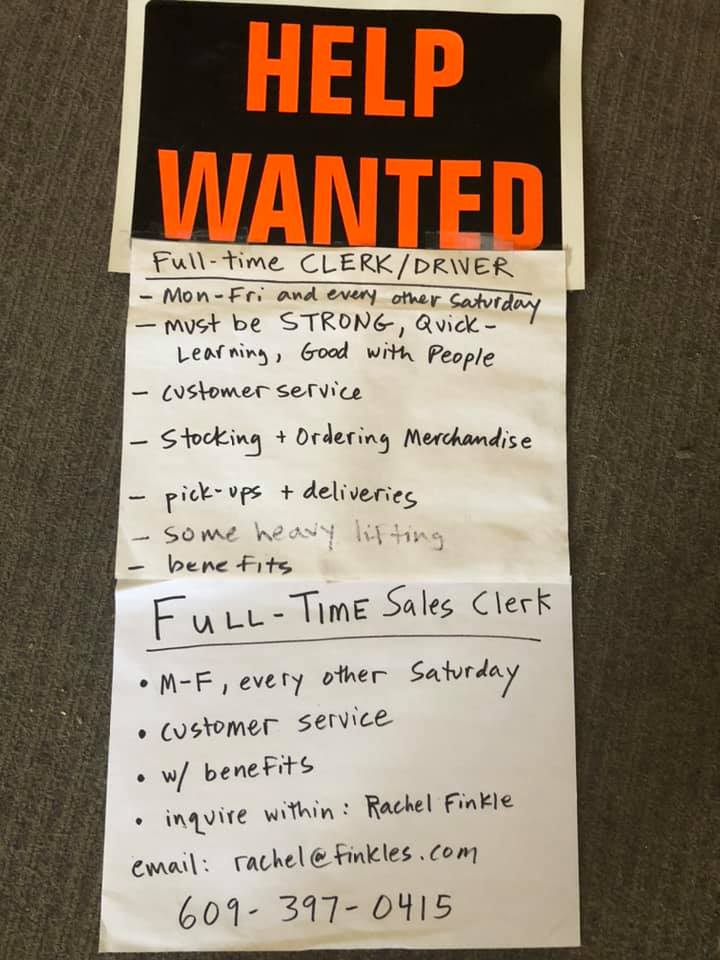 HELP
WANTED
Full-time CLERK/DRIVER
- Mon-Fri and every other Saturday
- must be STRONG, Quick-
Learning, Good with People
- customer service
- Stocking + Ordering Merchandise
- pick-ups + deliveries
- some heavy lifting
- benefits
FULL-TIME Sales Clerk
• M-F, every other Saturday
• customer service
• w/ benefits
• inquire within: Rachel Finkle
email: rachel@finkles.com
609-397-0415